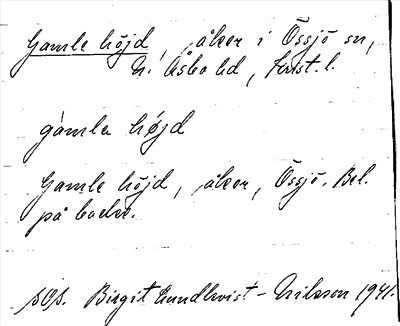 Gamle höjd, åker i Össjö sn,
N. Åsbo hd, Krist. l.
gàmlə højd
Gamle höjd, åker, Össjö. Bel.
på backe.
Birgit Lundkvist-Nilsson 1941.